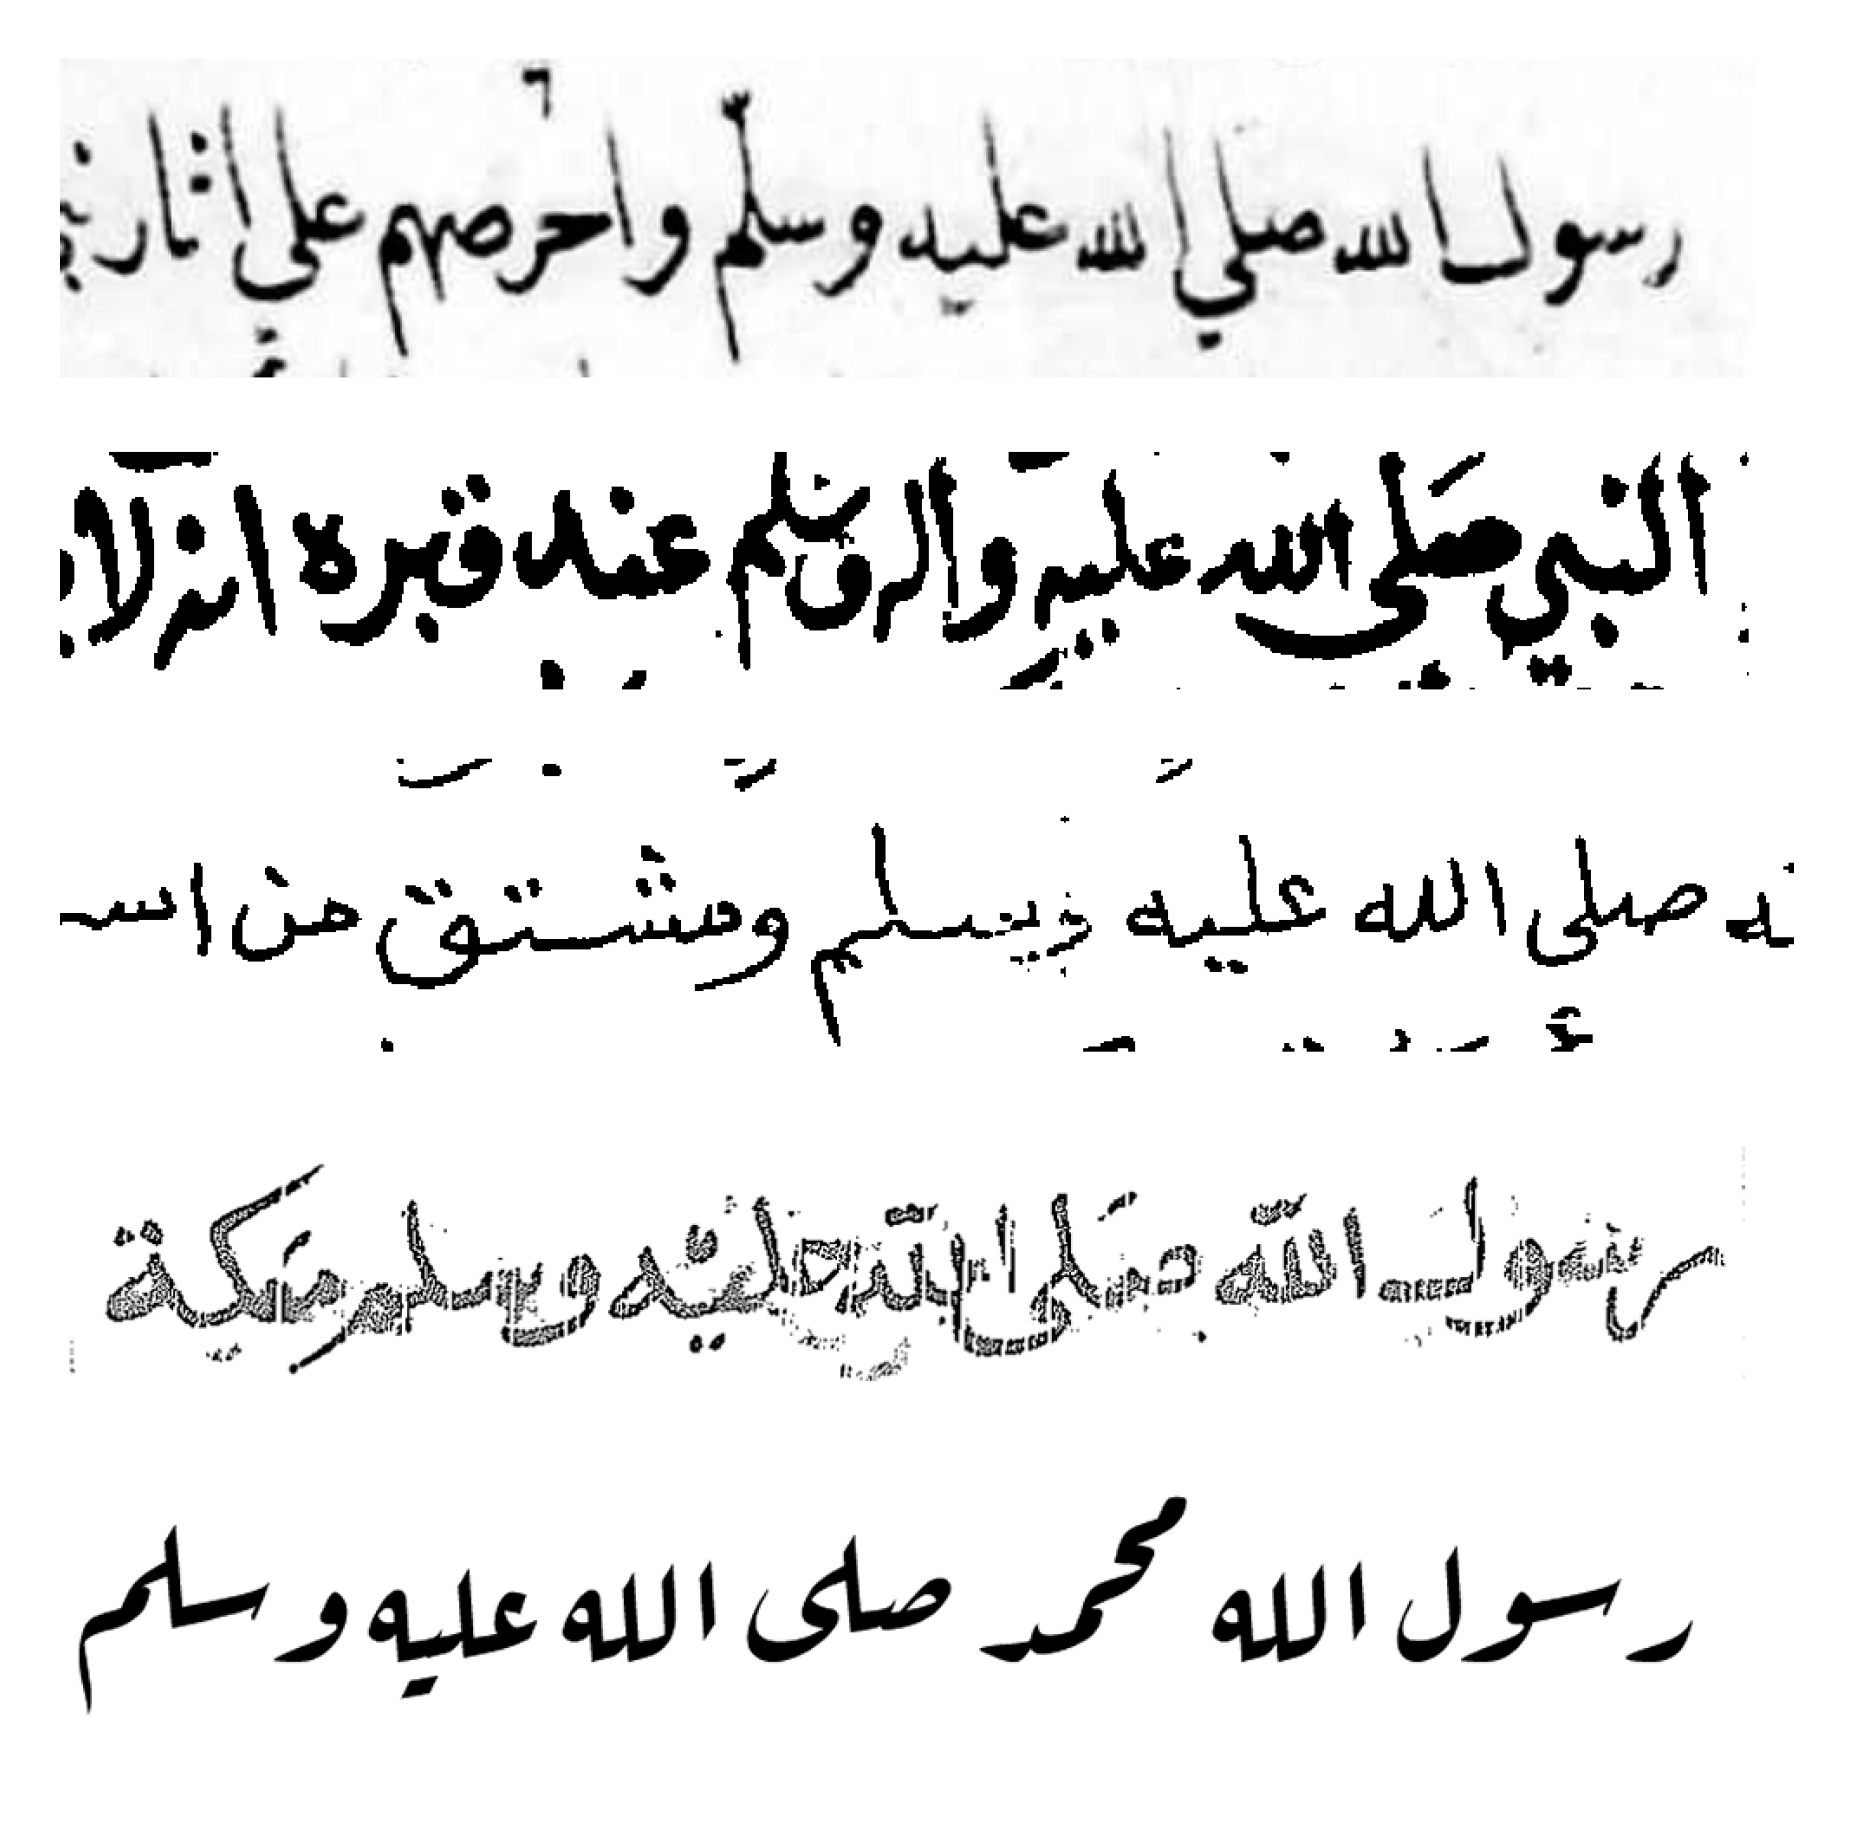 رسول الله صلي الله عليه وسلّم واحرصهم على اثار
النبي صَلى الله عليه واله وسلم عند قبره انه لا
صلى الله عليه وسلم ومشتق من اسـ
رسول الله صَلى الله عليه وسلم بمكة
رسول الله محمد صلى الله عليه وسلم